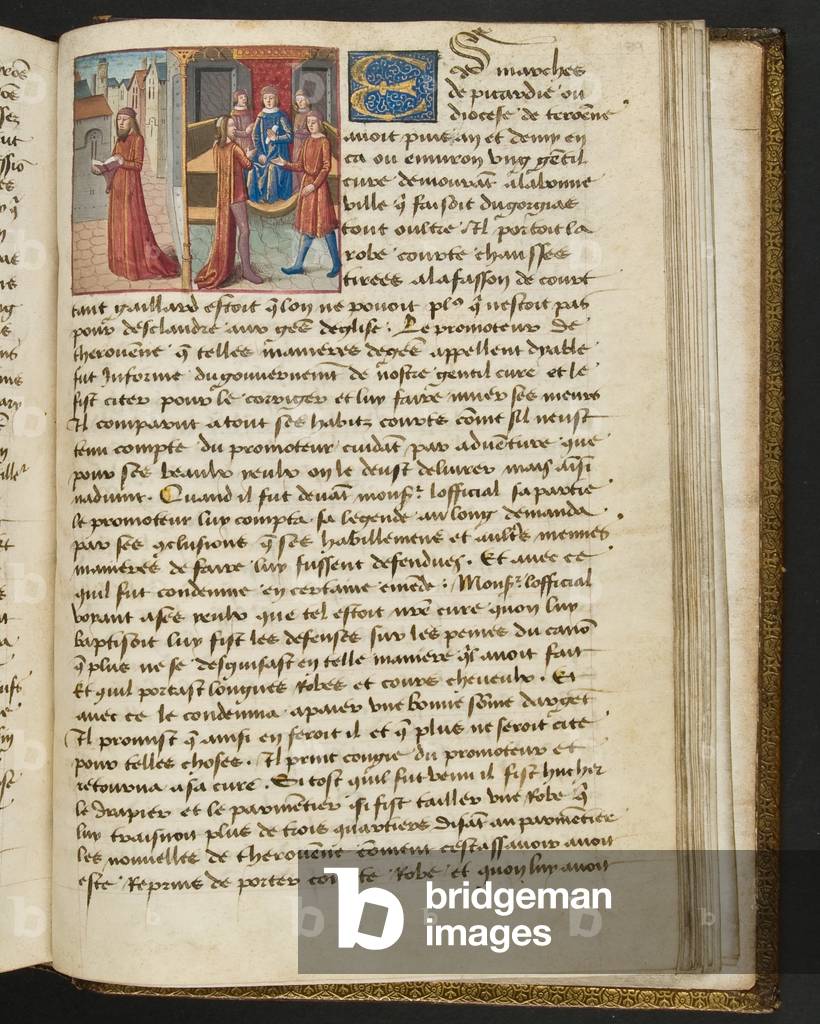 189
Es marches
de picardie ou
diocese de teroene
auoit puis an et demy en
ca ou enuiron vng gētil
cure demourāt a la bonne
ville q̄ faisoit du gorgias
tout oultre Il portoit la
robe courte chausses
tirees a la fasson de court
tant gaillard estoit q̄ lon ne pouoit plꝰ q̄ nestoit pas
pour desclandre aux gēs deglise . Le promoteur de
therouēne q̄ telles manieres de gēs appellent dyable
fut Informe du gouuernemēt de nostre gentil cure et le
fist citer pour le corriger et luy faire muer ses meurs
Il comparut a tout ses habitz courts cōme sil neust
tenu compte du promoteur cuidāt par aduēture que
pour ses beaulx yeulx on le deust deliurer mais aīsi
naduint . Quand il fut deuāt monsʳ lofficial sa partie
le promoteur luy compta sa legende au long demanda
par ses 9clusions q̄ ses habillemens et aultˢ menues
manieres de faire luy fussent defendues . Et auec ce
quil fut condemne en certaine emēde . Monsʳ lofficial
voyant a ses yeulx que tel estoit nr̄e cure quon luy
baptisoit luy fist les defenses sur les peines du canō
q̄ plus ne se desguisast en telle maniere q̄l auoit fait
Et quil portast longues Robes et cours cheueulx . Et
auec ce le condemna a paier vne bonne sōme dargēt
Il promist q̄ ainsi en feroit il et q̄ plus ne seroit cite
pour telles choses . Il print congie du promoteur et
retourna a sa cure . Si tost quil fut venu il fist hucher
le drapier et le parmentier si fist tailler vne Robe q̄
luy traisnoit plus de trois quartiers disāt au parmētier
les nouuelles de therouēne cōment cestassauoir auoit
este Reprins de porter courte Robe et quon luy auoit
bridgeman
images